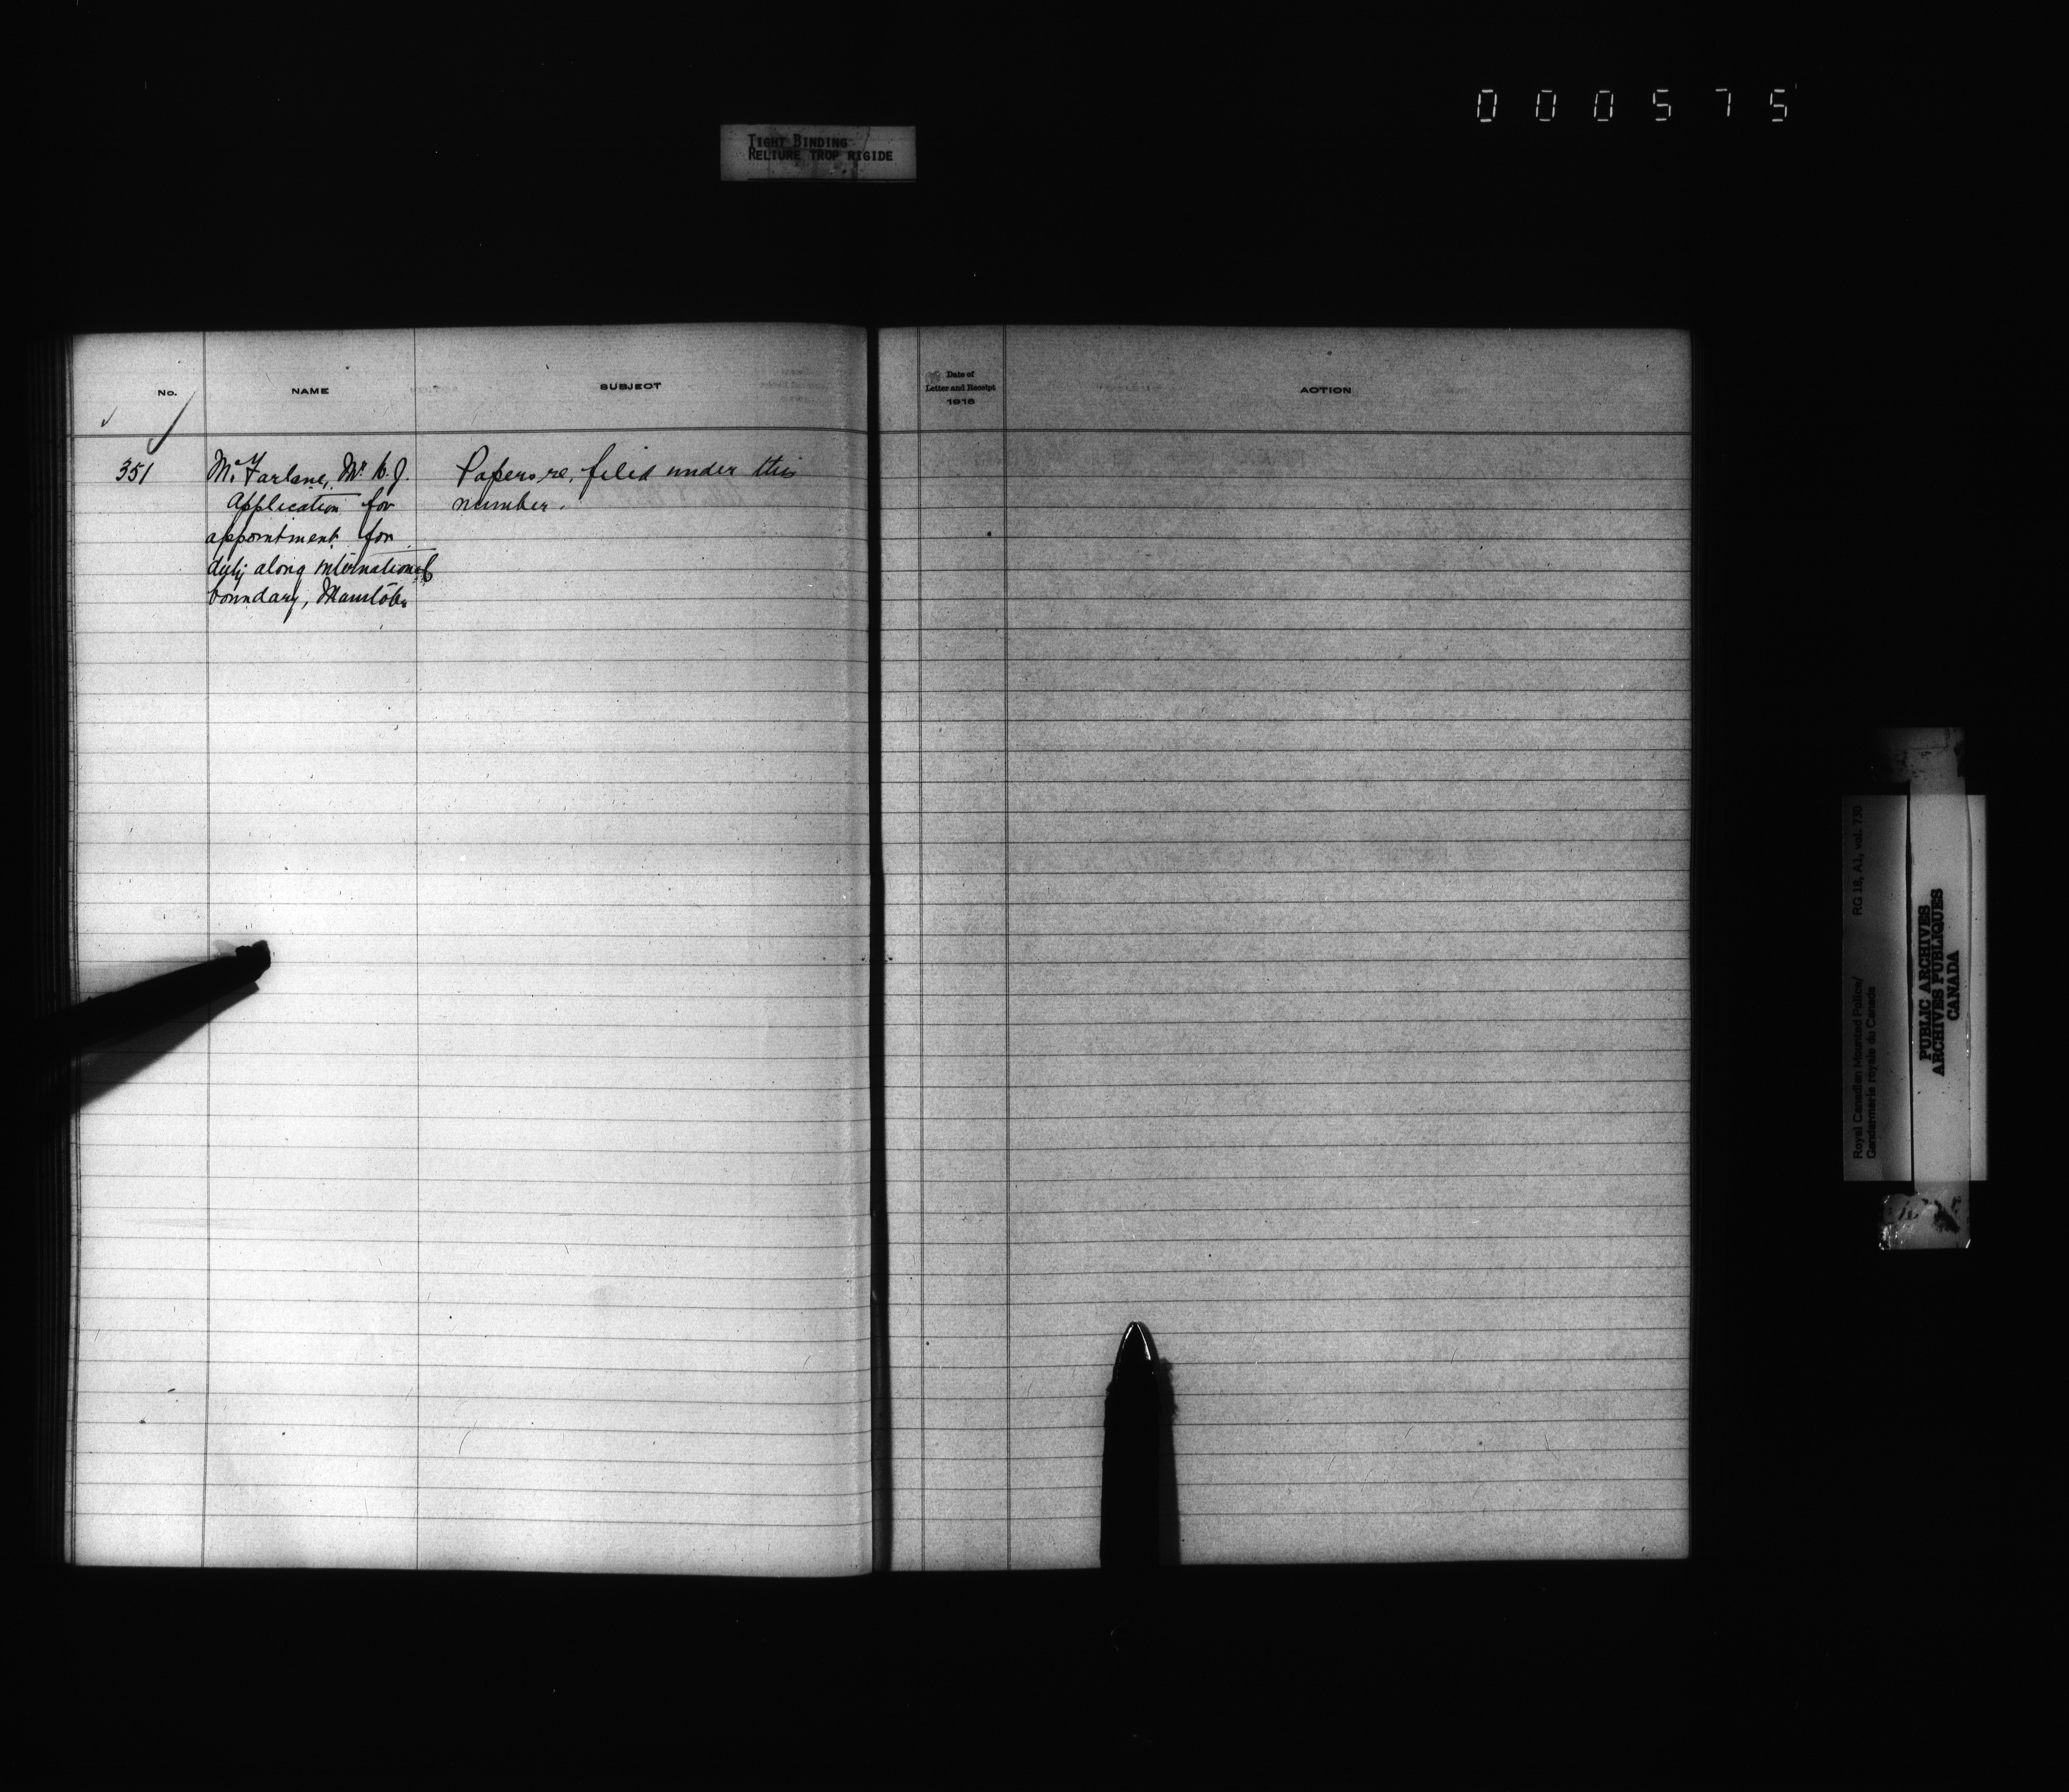 000575
TIGHT BINDING
RELIURE TROP RIGIDE
No.
NAME
SUBJECT
Date of
Letter and Receipt
1918
ACTION
351
McFarlane, Mr. J.
Papers re, filed under this
Application for
number.
appointment for
duty along international
boundary, Manitoba
RG 18, A1, vol. 730
Royal Canadian Mounted Police/
Gendarmerie royale du Canada
PUBLIC ARCHIVES
ARCHIVES PUBLIQUES
CANADA